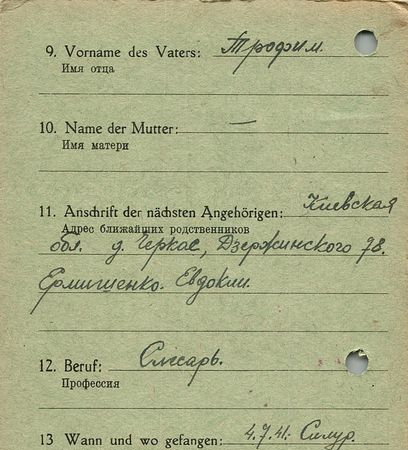 9. Vorname des Vaters: Трофим.
Имя отца
10. Name der Mutter: —
Имя матери
11. Anschrift der nächsten Angehörigen: Киевская
Адрес ближайших родственников
обл. д. Черкас, Дзержинского 78.
Ермишенко. Евдоким.
12. Beruf: Слесарь.
Профессия
13 Wann und wo gefangen: 4.7.41.